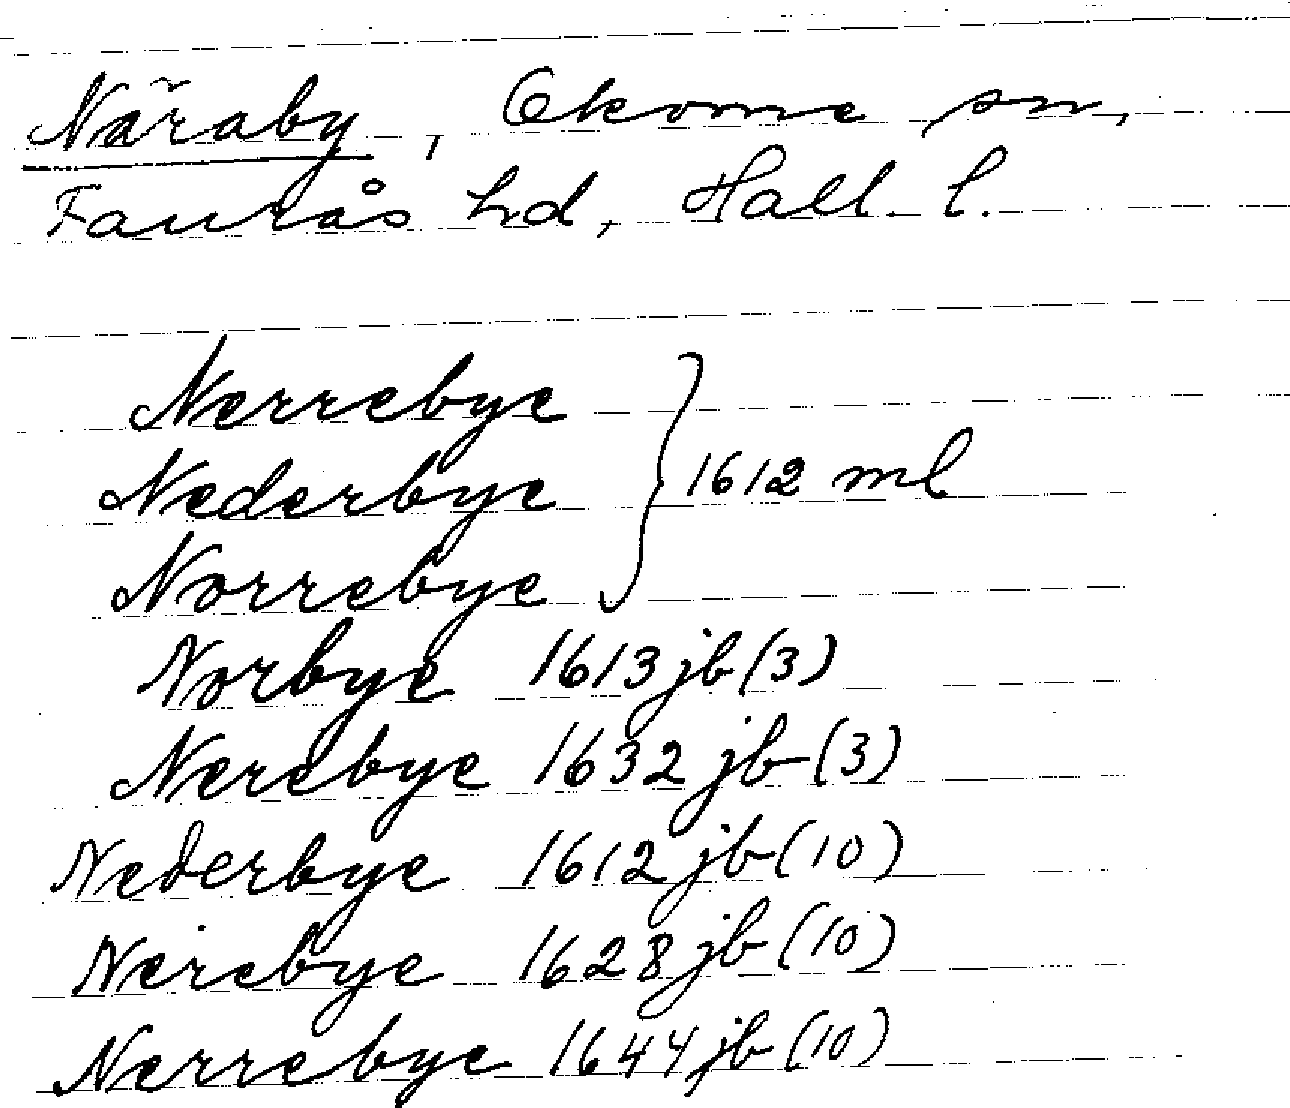 Näraby, Okome sn,
Faurås hd, Hall. l.
Nerrebye
Nederbye } 1612 ml
Norrebye
Norbye 1613 jb (3)
Nerebye 1632 jb (3)
Nederbye 1612 jb (10)
Nerebye 1628 jb (10)
Nerrebye 1644 jb (10)